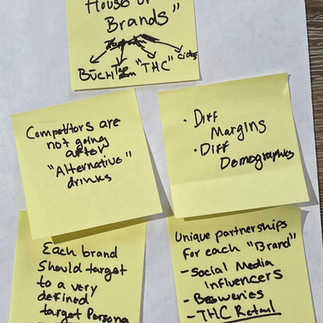 House of
Brands"
BUCHI "THC" Cider
Competitors are
not going
after
"Alternative"
drinks
• Diff
Margins
• Diff
Demographics
Each brand
Should target
to a very
defined
target Persona
Unique partnerships
for each "Brand"
- Social Media
Influencers
- Breweries
- THC Retail